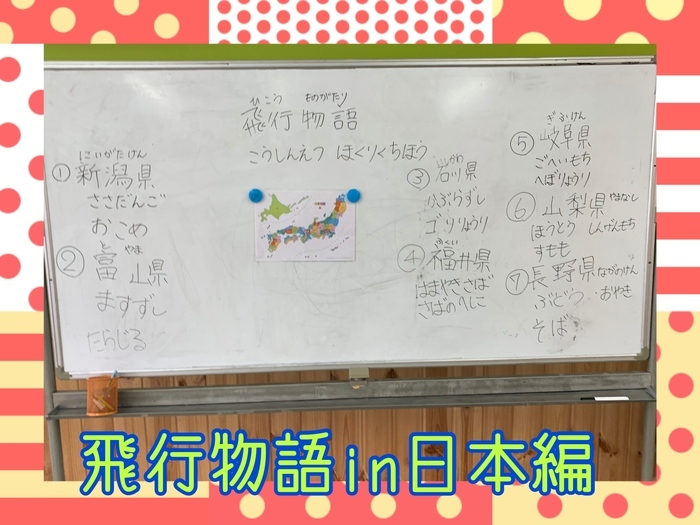 ひこう ものがたり
飛行物語
こうしんえつ ほくりくちほう
にいがたけん
①新潟県
ささだんご
おこめ
と やま
②富山県
ますずし
たらじる
いしかわ
③石川県
ひぶらずし
ゴリりょうり
ふくい
④福井県
はまやきさば
さばのへしこ
ぎふけん
⑤岐阜県
ごへいもち
へぼりょうり
⑥山梨県 やまなし
ほうとう しんげんもち
すもも
⑦長野県 ながのけん
ぶどう おやき
そば
飛行物語in日本編